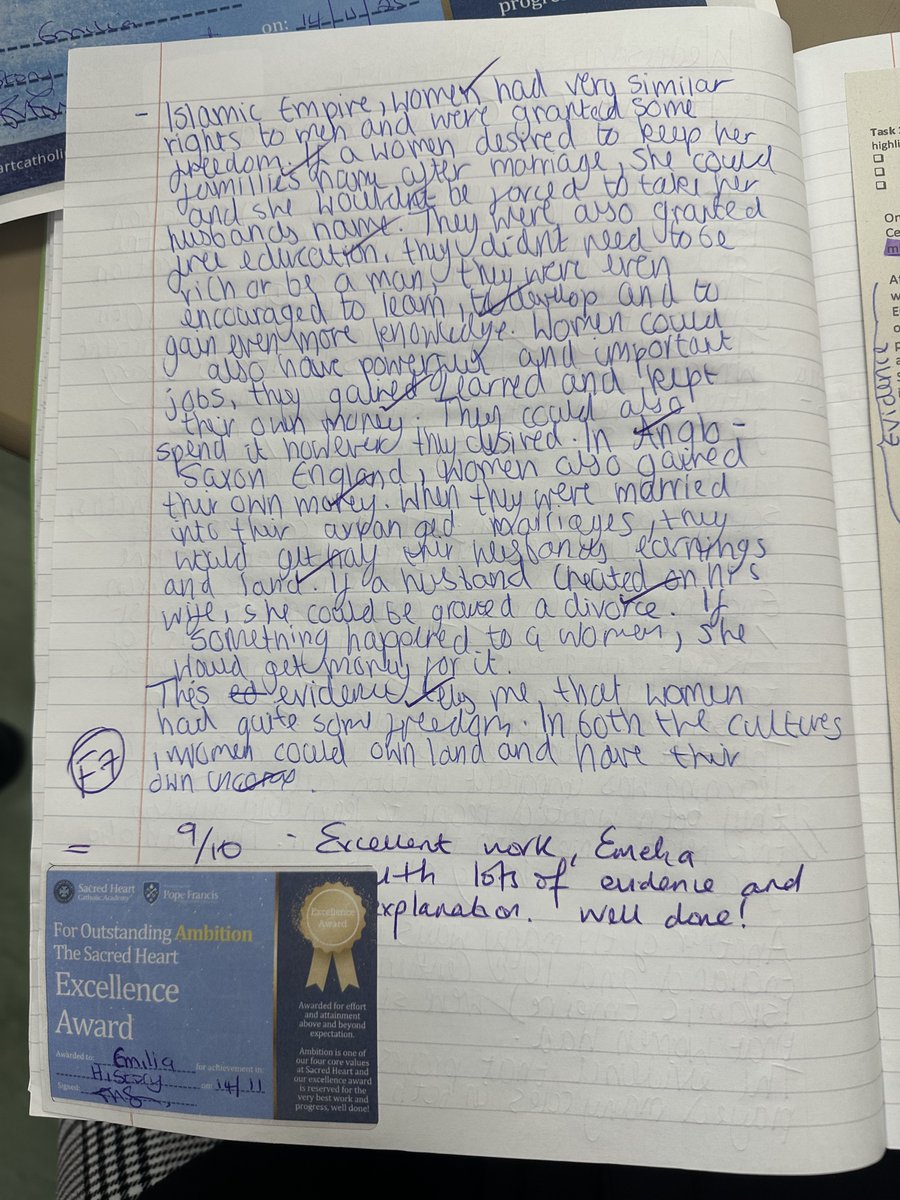 Emilia
on: 14/11/25
progr
artcatholi
- Islamic Empire, women had very similar
rights to men and were granted some
freedom. If a women desired to keep her
famillies name after marriage, she could
and she wouldnt be forced to take her
husbands name. They were also granted
free education, they didnt need to be
rich or be a man, they were even
encouraged to learn, to develop and to
gain even more knowledge. Women could
also have powerful and important
jobs, they gained learned and kept
their own money. They could also
spend it however they desired. In Anglo-
Saxon England, women also gained
thier own money. When they were married
into thier arranged marrieges, they
would get half thier husbands earnings
and land. If a husband cheated on his
wife, she could be graved a divorce. If
something happened to a women, she
would get money for it.
This evidence tells me that women
had quite some freedom. In both the cultures
, women could own land and have thier
own
F7
= 9/10 - Excellent work, Emelia
with lots of evidence and
explanation. Well done!
Sacred Heart
Catholic Academy
Pope Francis
For Outstanding Ambition
The Sacred Heart
Excellence
Award
Awarded to: Emilia for achievement in:
History
Signed: on: 14/11
Excellence
Award
Awarded for effort
and attainment
above and beyond
expectation.
Ambition is one of
our four core values
at Sacred Heart and
our excellence award
is reserved for the
very best work and
progress, well done!
Task
highli
On
Ce
m
At
w
Evidence